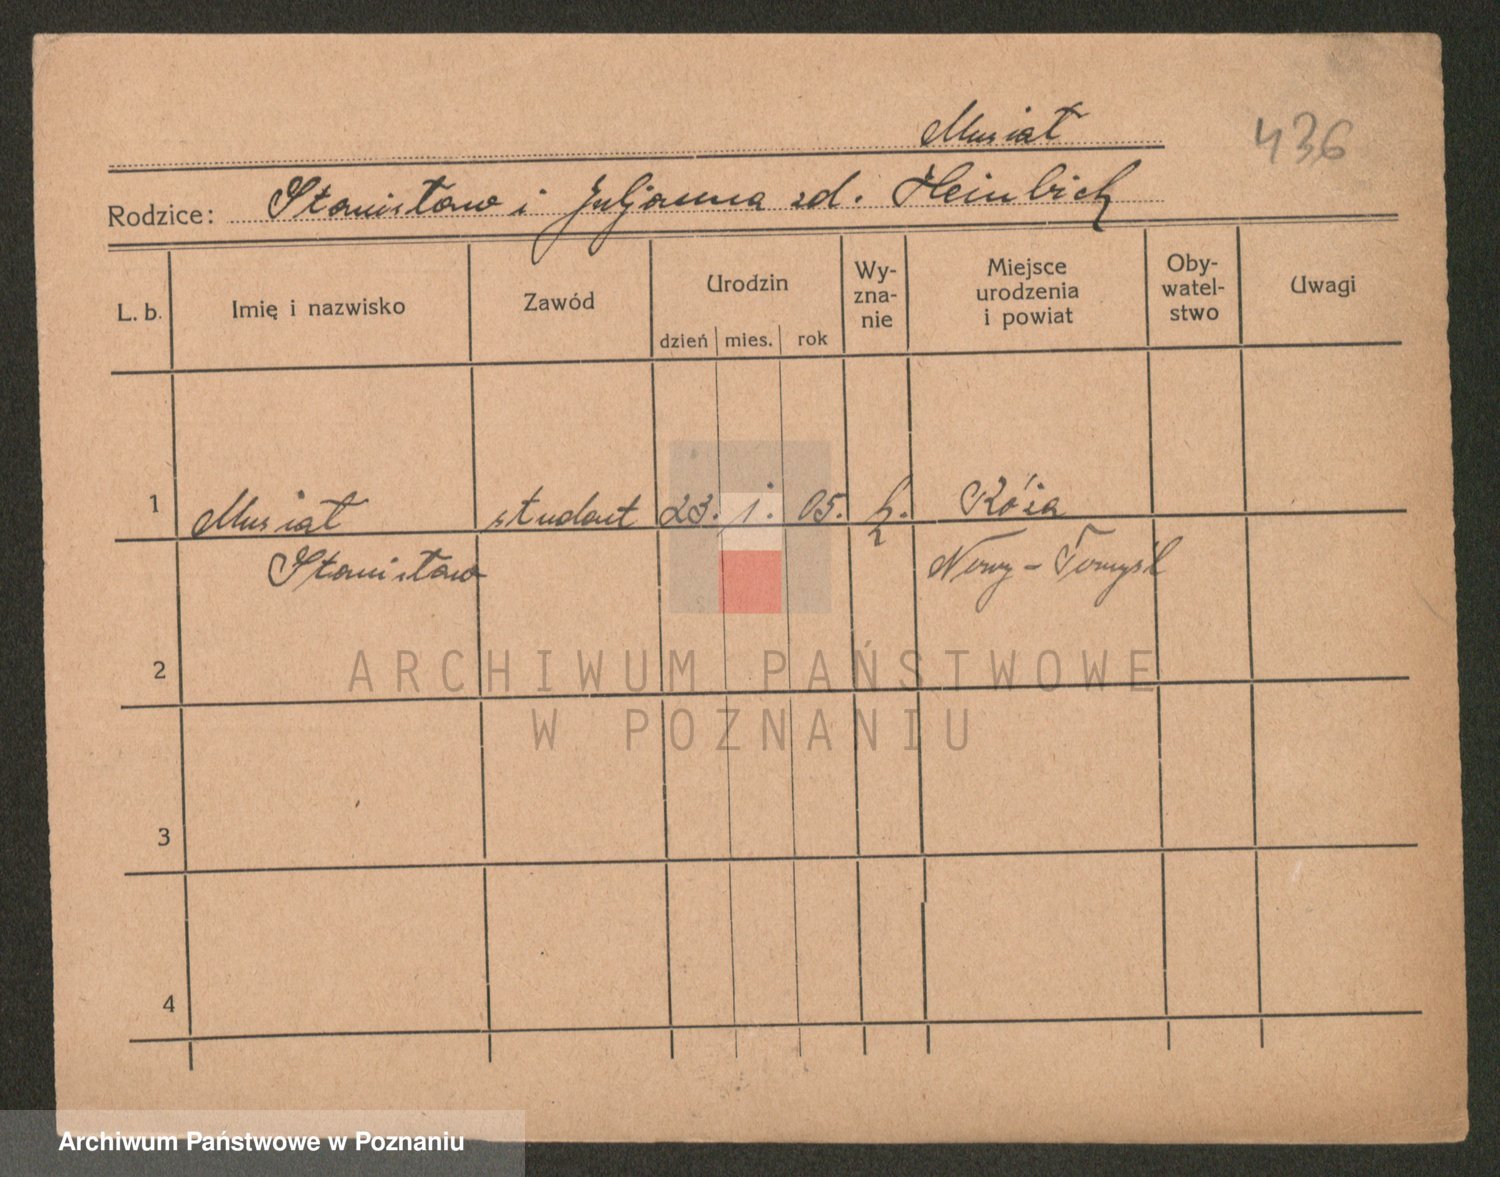 Musiał
436
Rodzice: Stanisław i Juljanna zd. Heinbich
L. b.
Imię i nazwisko
Zawód
Urodzin
dzień mies. rok
Wy-
zna-
nie
Miejsce
urodzenia
i powiat
Oby-
watel-
stwo
Uwagi
1 Musiał student 23. 1. 05. k. Róża
Stanisław Nowy-Tomyśl
2
3
4
ARCHIWUM PAŃSTWOWE
W POZNANIU
Archiwum Państwowe w Poznaniu